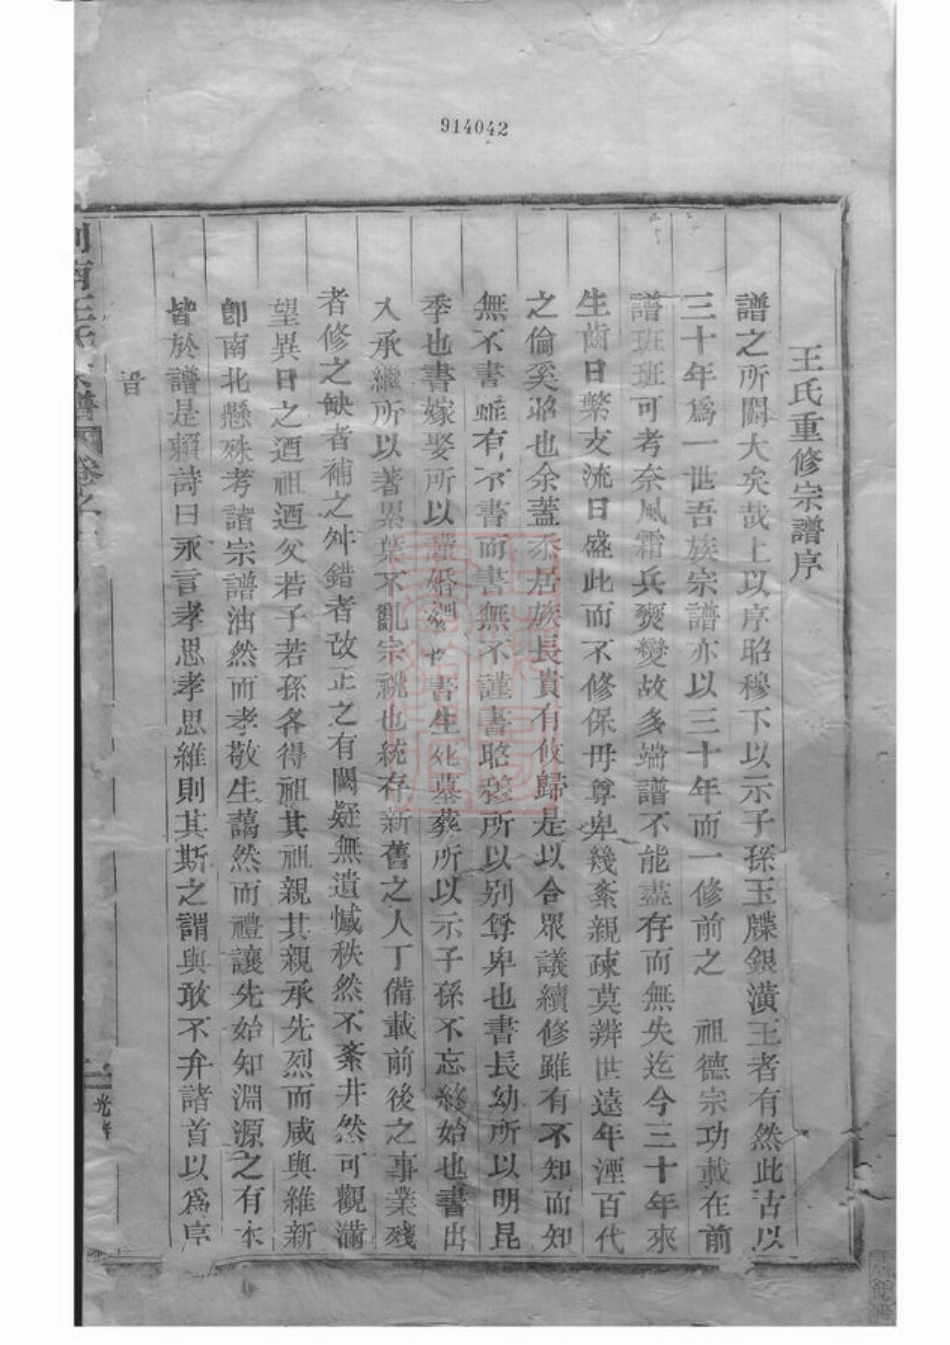 914042
王氏重修宗譜序
譜之所關大矣哉上以序昭穆下以示子孫玉牒銀潢王者有然此古以
三十年爲一世吾族宗譜亦以三十年而一修前之 祖德宗功載在前
譜班班可考奈風霜兵燹變故多端譜不能盡存而無失迄今三十年來
生齒日繁支流日盛此而不修保毋尊卑幾紊親疎莫辨世遠年湮百代
之倫奚詔也余蓋忝居族長責有攸歸是以合眾議續修雖有不知而知
無不書雖有不書而書無不謹書昭穆所以别尊卑也書長幼所以明昆
季也書嫁娶所以 婚 書生死墓葬所以示子孫不忘終始也書出
入承繼所以著累葉不亂宗祧也統存新舊之人丁備載前後之事業殘
者修之缺者補之舛錯者改正之有闕疑無遺憾秩然不紊井然可觀滿
望異日之迺祖迺父若子若孫各得祖其祖親其親承先烈而咸與維新
卽南北懸殊考諸宗譜油然而孝敬生藹然而禮讓先始知淵源之有本
皆於譜是賴詩曰永言孝思孝思維則其斯之謂與敢不弁諸首以爲序
南王氏宗譜 卷之